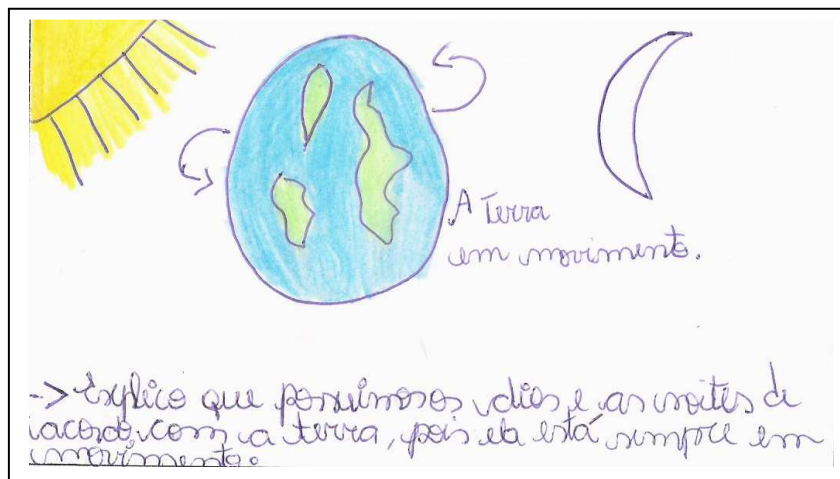 A terra
em movimento.
-> Explico que possuimosos dias e as noites de
acordo com a terra, pois ela está sempre em
movimento.